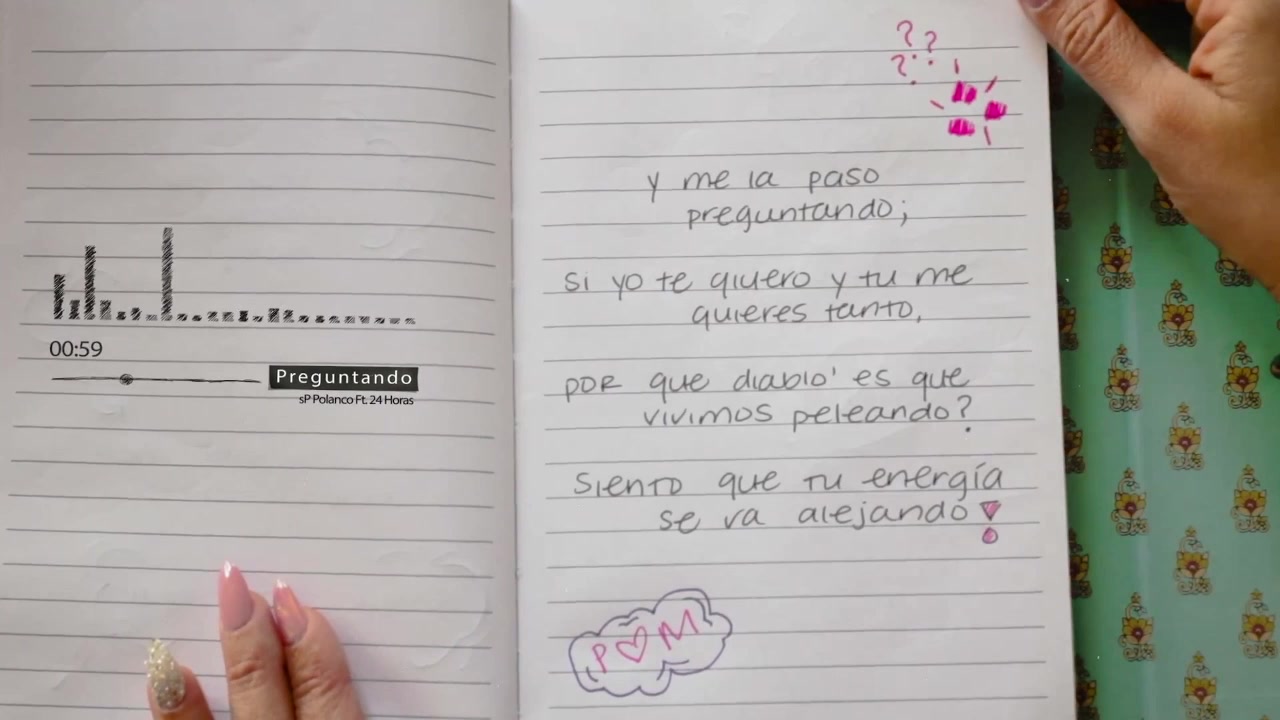 00:59
Preguntando
sP Polanco Ft. 24 Horas
? ?
?
y me la paso
preguntando;
si yo te qiuero y tu me
quieres tanto,
por que diablo' es que
vivimos peleando?
siento que tu energía
se va alejando!
P♡M